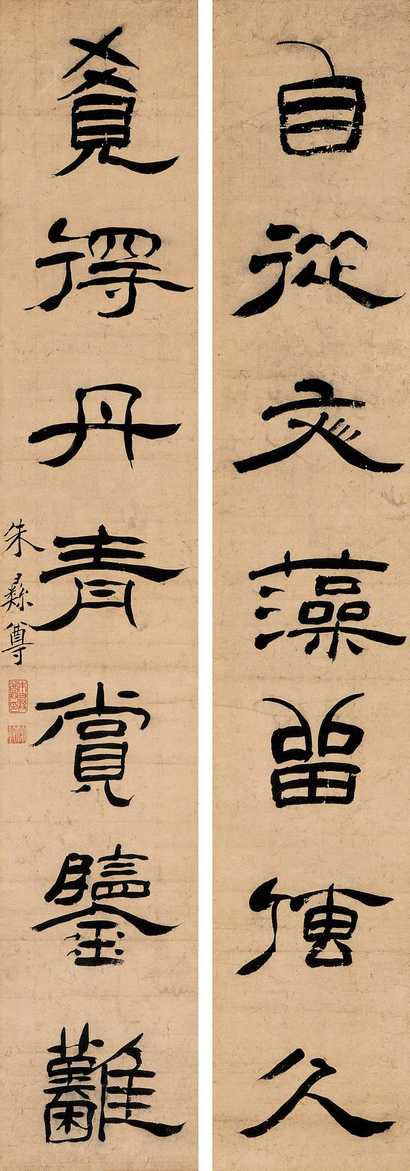 自從彣藻留傳久
覓得丹青賞鑒難
朱彝尊